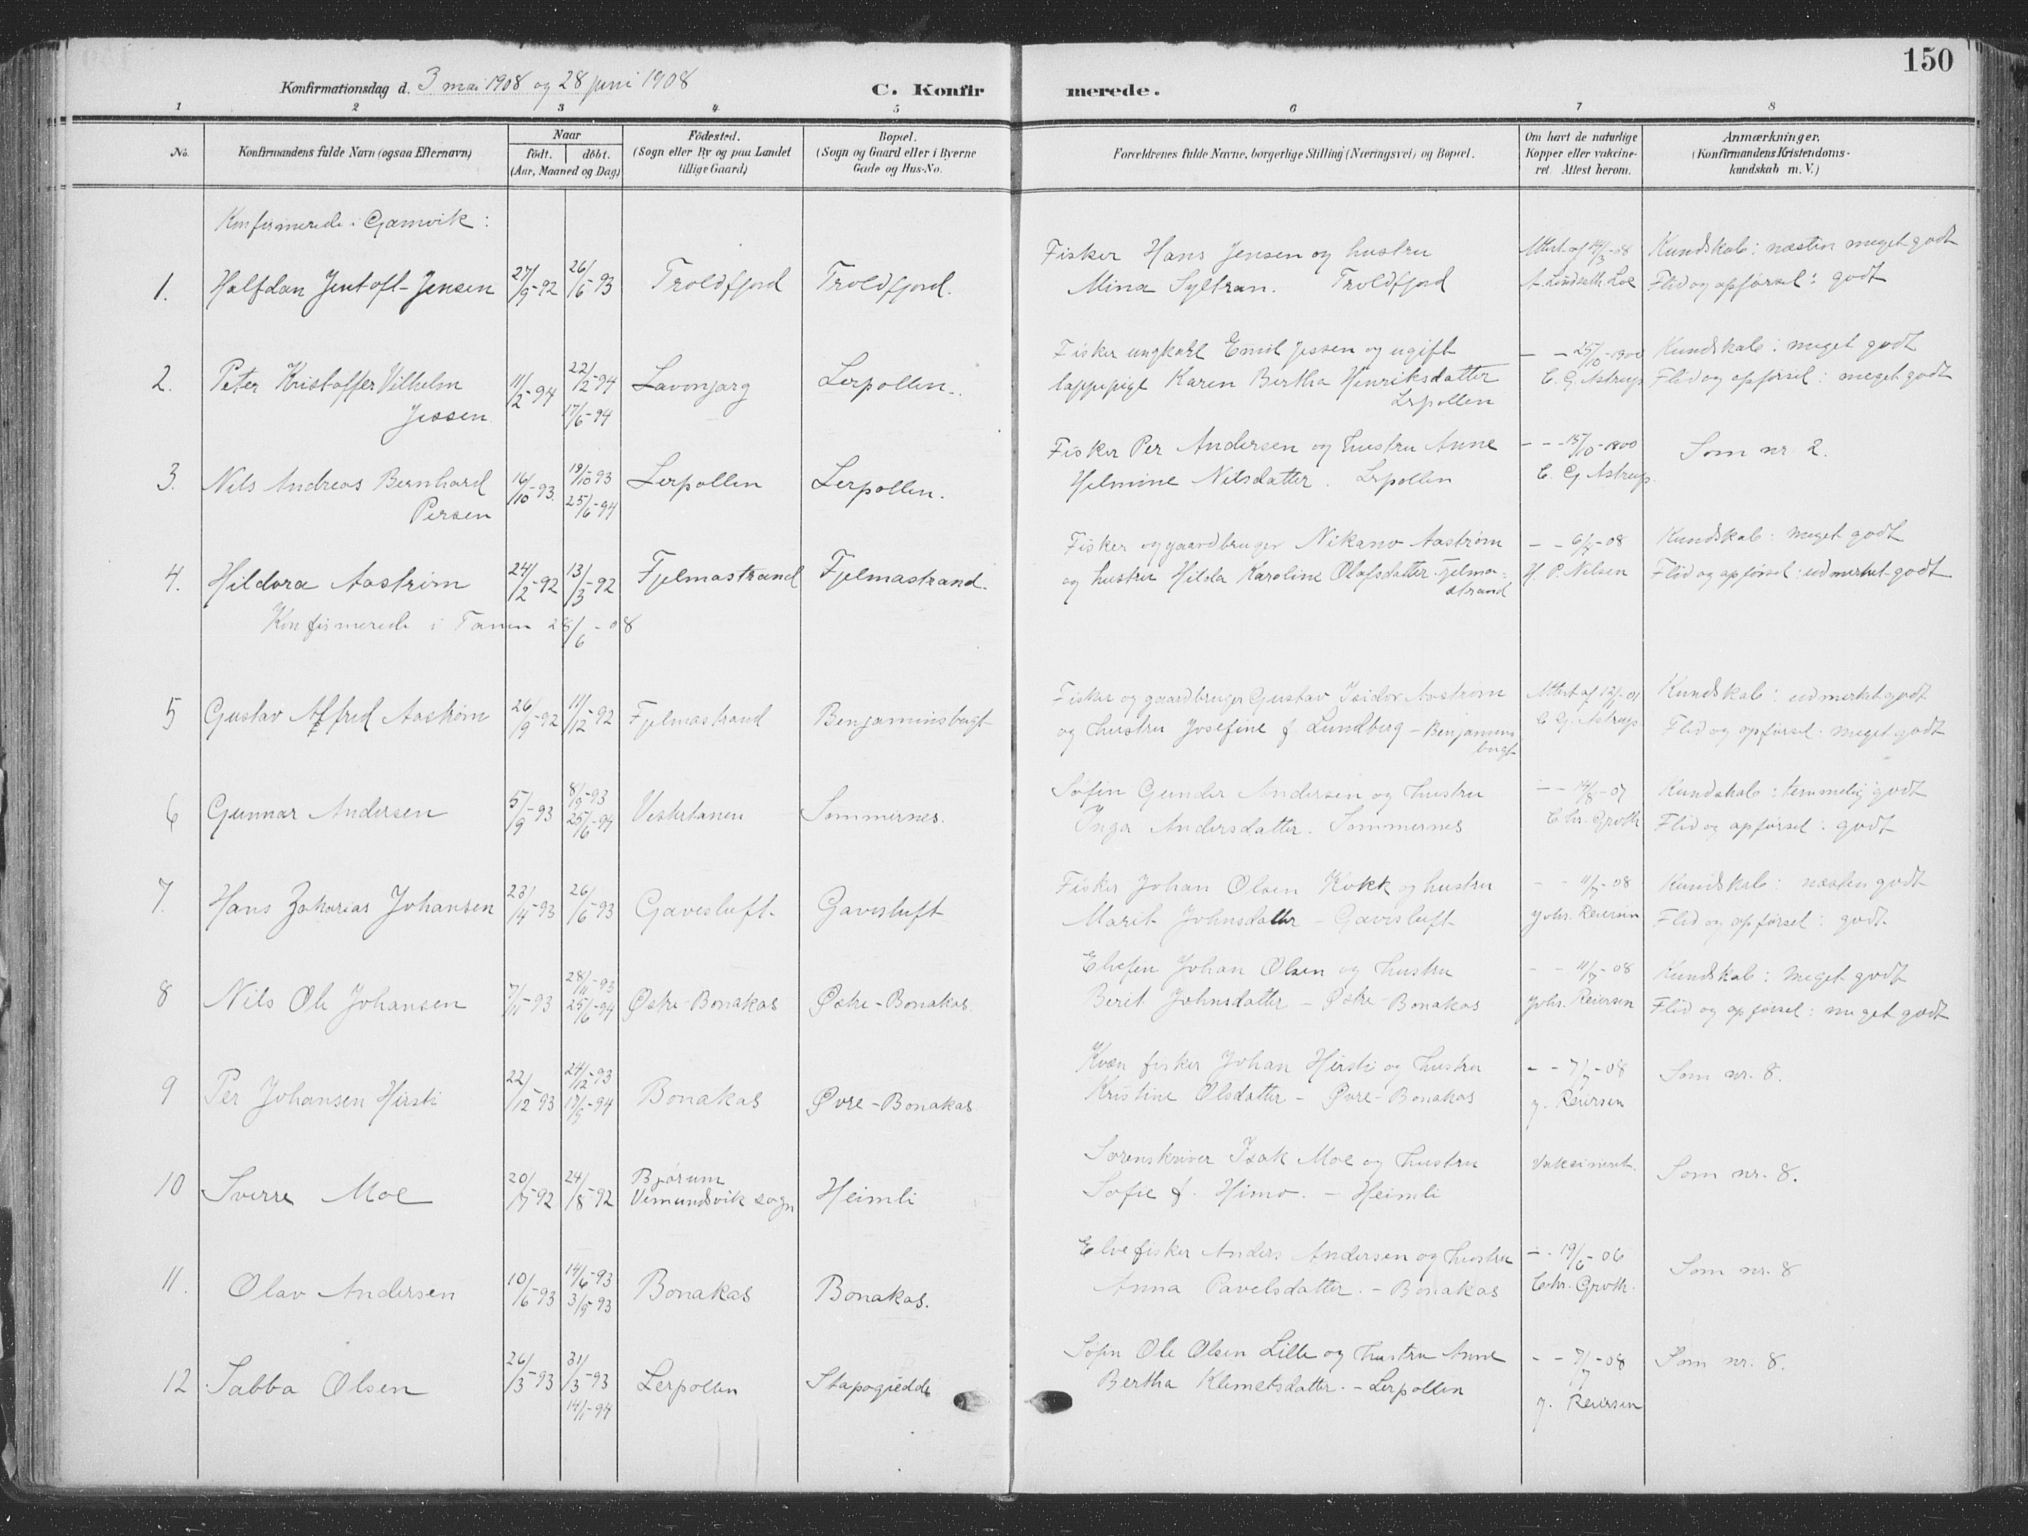 150
Konfirmationsdag d. 3 mai 1908 og 28 juni 1908
C. Konfir merede.
1 2 3 4 5 6 7 8
No. Konfirmandens fulde Navn (ogsaa Efternavn) Naar födt. döbt. (Aar, Maaned og Dag) Födested. (Sogn eller By og paa Landet tillige Gaard) Bopæl. (Sogn og Gaard eller i Byerne Gade og Hus-No. Forældrenes fulde Navne, borgerlige Stilling (Næringsvei) og Bopæl. Om havt de naturlige Kopper eller vakcineret. Attest herom. Anmærkninger. (Konfirmandens Kristendomskundskab m. V.)
Konfirmerede i Gamvik:
1. Halfdan Jentoft Jensen 27/9-92 26/6-93 Troldfjord Troldfjord. Fisker Hans Jensen og hustru Attest af 14/3-08 Kundskab: næsten meget godt
Mina Syltran. Troldfjord A. Lindseth Loe Flid og opførsel: godt
2. Peter Kristoffer Vilhelm Jessen 11/2-94 22/2-94 17/6-94 Lavonjarg Lerpollen. Fisker ungkarl Emil Jessen og ugift - - 25/10-1900 Kundskab: meget godt
lappepige Karen Bertha Henriksdatter Lerpollen C. G. Astrup Flid og opførsel: meget godt
3. Nils Andreas Bernhard Persen 16/10-93 19/10 93 25/6-94 Lerpollen Lerpollen. Fisker Per Andersen og hustru Anne - - 15/10-1900 Som nr 2.
Helmine Nilsdatter. Lerpollen C. G. Astrup
4. Hildora Aastrøm 24/2-92 13/3-92 Fjelmastrand Fjelmastrand. Fisker og gaardbruger Nikano Aastrøm - - 6/4-08 Kundskab: meget godt
og hustru Hilda Karoline Olafsdatter Fjelmastrand H. P. Nilsen Flid og opførsel: udmerket godt
Konfirmerede i Tanen 28/6-08
5 Gustav Alfred Aastrøm 26/9-92 11/12-92 Fjelmastrand Benjaminsbugt Fisker og gaardbruger Gustav Isidor Aastrøm Attest af Kundskab: udmerket godt
og hustru Josefine f. Lundberg - Benjaminsbugt C. G. Astrup Flid og opførsel: meget godt
6 Gunnar Andersen 5/9-93 8/9-93 25/6-94 Vestertanen Sommernes. Søfin Gunder Andersen og hustru - - 14/8-07 Kundskab: temmelig godt
Inga Andersdatter. Sommernes Chr. Groth Flid og opførsel: godt
7. Hans Zakarias Johansen 23/4-93 26/6-93 Gavesluft. Gavesluft Fisker Johan Olsen Kokk og hustru - - 11/7-08 Kundskab: næsten godt
Marit Johnsdatter - Gavesluft Johs. Reiersen Flid og opførsel: godt
8 Nils Ole Johansen 7/11-93 28/11-93 25/6-94 Østre-Bonakas Østre-Bonakas. Elvefin Johan Olsen og hustru - - 11/7-08 Kundskab: meget godt
Berit Johnsdatter - Østre-Bonakas Johs. Reiersen Flid og opførsel: meget godt
9 Per Johansen Hirsti 22/12-93 24/12-93 17/5-94 Bonakas Øvre-Bonakas. Kvæn fisker Johan Hirsti og hustru - - 7/7-08 Som nr. 8.
Kristine Olsdatter - Øvre-Bonakas J. Reiersen
10 Sverre Moe 20/7-92 24/8-92 Bjørum Vemundsvik sogn Heimli Sorenskriver Isak Moe og hustru Vaksineret. Som nr. 8.
Sofie f. Himo. - Heimli
11. Olav Andersen 10/6-93 14/6-93 3/9-93 Bonakas Bonakas. Elvefisker Anders Andersen og hustru - - 19/6-06 Som nr. 8
Anna Pavelsdatter. - Bonakas Chr. Groth.
12 Sabba Olsen 26/3-93 31/3-93 14/1-94 Lerpollen Stapogiedde Søfin Ole Olsen Lille og hustru Anne - - 7/7-08 Som nr. 8.
Bertha Klemetsdatter. - Lerpollen J. Reiersen